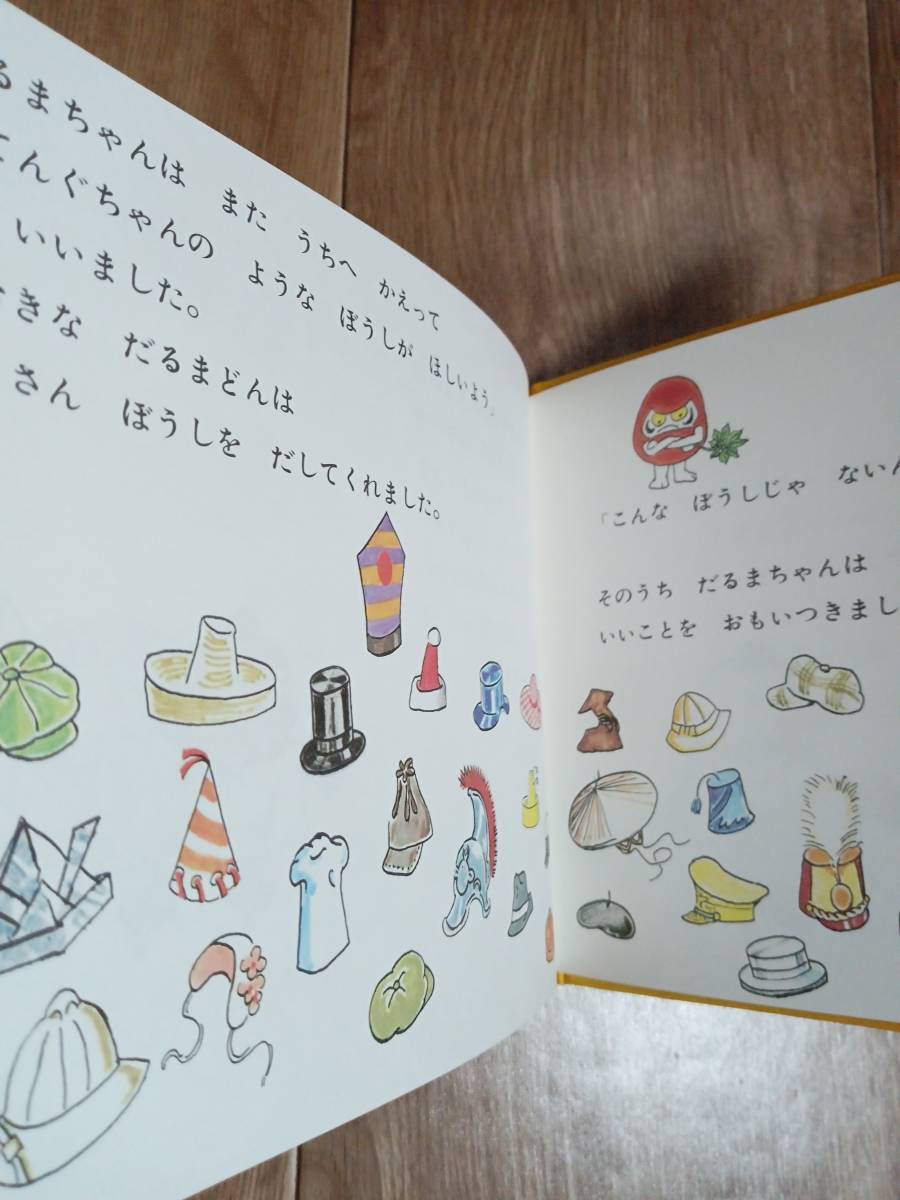 るまちゃんは また うちへ かえって
てんぐちゃんの ような ぼうしが ほしいよう」
いいました。
きな だるまどんは
さん ぼうしを だしてくれました。
「こんな ぼうしじゃ ないん
そのうち だるまちゃんは
いいことを おもいつきまし